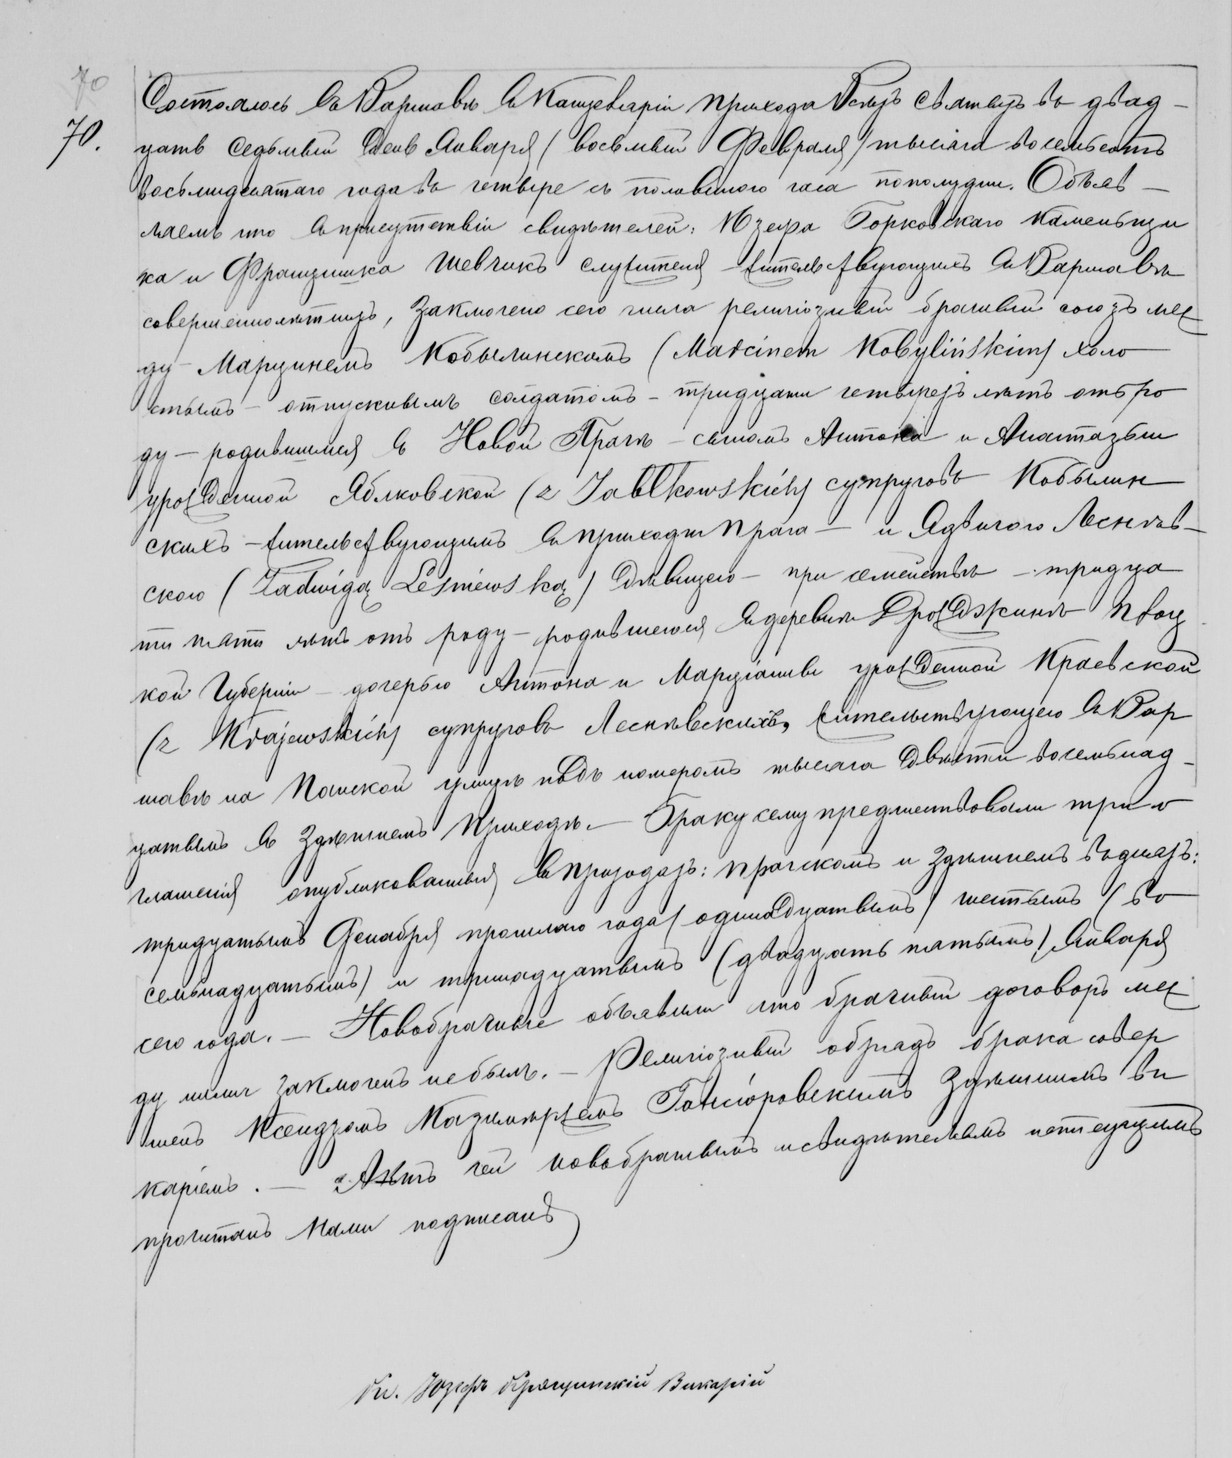 70
70.
Состоялось въ Варшавѣ въ Канцеляріи прихода Всѣхъ Святыхъ въ двад-
цать седьмый день Января / восьмый Февраля / тысяча восемьсотъ
восьмидесятаго года въ четвере съ половиною часа пополудни. Объяв-
ляемъ что въ присутствіи свидѣтелей: Юзефа Горковскаго каменьщи
ка и Францишка Шевчикъ служителя жительствующихъ въ Варшавѣ
совершеннолѣтнихъ, заключено сего числа религіозный брачный союзъ меж
ду Марцинемъ Кобылинскимъ (Marcinem Kobylińskim) холо
стымъ - отпускнымъ солдатомъ - тридцати четырехъ лѣтъ отъ ро
ду - родившимся въ Новой Прагѣ - сыномъ Антона и Анастазыи
урожденной Яблковской (z Jabłkowskich) супруговъ Кобылин
скихъ - жительствующимъ въ приходѣ Прага - и Ядвигою Леснѣв-
скою (Jadwigą Leśniewską) дѣвицею - при семействѣ - тридца
ти пяти лѣтъ отъ роду - родившеюся въ деревнѣ Дрожджинъ Плоц
кой Губерніи - дочерью Антона и Марціанны урожденной Краевской
(z Krajewskich) супруговъ Леснѣвскихъ, жительствующею въ Вар
шавѣ на Панской улицѣ подъ номеромъ тысяча двѣсти восемьнад-
цатымъ въ здѣшнемъ приходѣ. - Браку сему предшествовали три о
глашенія опубликованныя въ приходахъ: прагскомъ и здѣшнемъ въ дняхъ:
тридцатымъ Декабря прошлаго года / одинадцатымъ / шестымъ (во
семьнадцатымъ) и тринадцатымъ (двадцать пятымъ) Января
сего года. - Новобрачные объявили что брачный договоръ меж
ду ними заключенъ небылъ. - Религіозный обрядъ брака совер
шенъ Ксендзомъ Казимиржемъ Гонсіоровскимъ здѣшнимъ ви
каріемъ. - Актъ сей новобрачнымъ и свидѣтелямъ неписущимъ
прочитанъ Нами подписанъ
Кс. Юзефъ Викарій